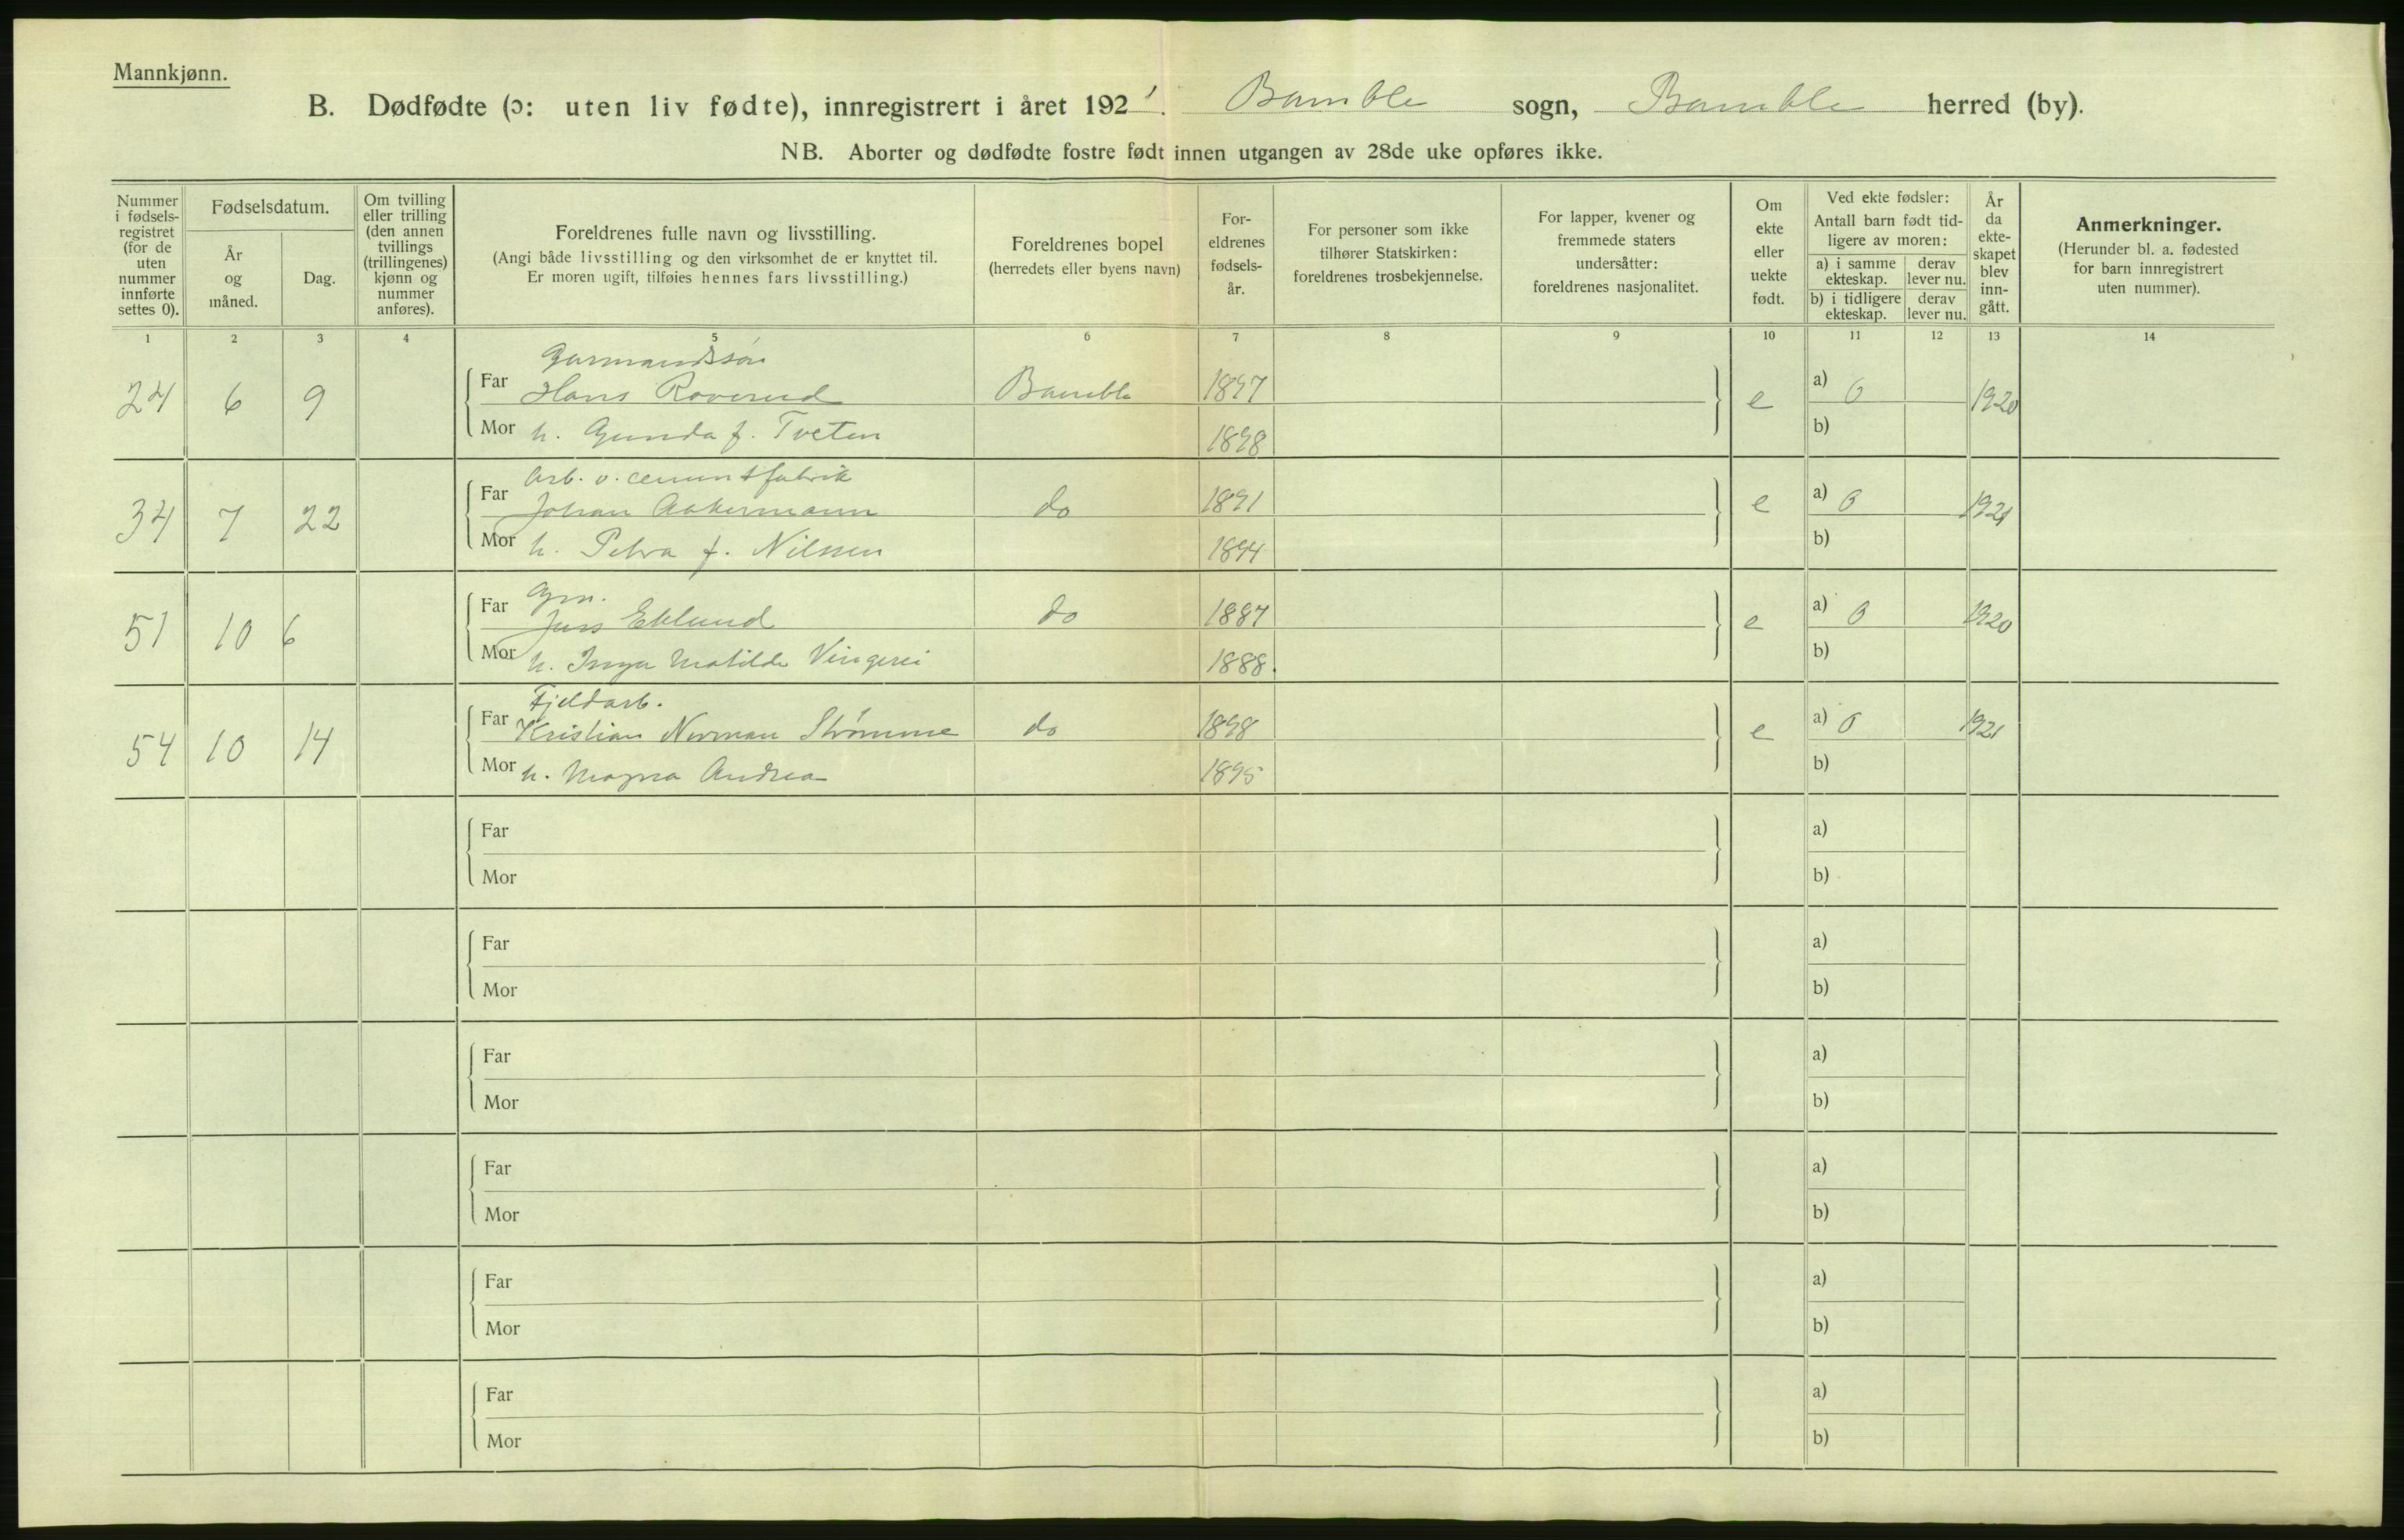 Mannkjønn.
B. Dødfødte (ɔ: uten liv fødte), innregistrert i året 1921. Bamble sogn, Bamble herred (by).
NB. Aborter og dødfødte fostre født innen utgangen av 28de uke opføres ikke.
Nummer i fødsels-registret (for de uten nummer innførte settes 0).
Fødselsdatum.
År og måned.
Dag.
Om tvilling eller trilling (den annen tvillings (trillingenes) kjønn og nummer anføres).
Foreldrenes fulle navn og livsstilling.
(Angi både livsstilling og den virksomhet de er knyttet til.
Er moren ugift, tilføies hennes fars livsstilling.)
Foreldrenes bopel
(herredets eller byens navn)
For-eldrenes fødsels-år.
For personer som ikke tilhører Statskirken: foreldrenes trosbekjennelse.
For lapper, kvener og fremmede staters undersåtter: foreldrenes nasjonalitet.
Om ekte eller uekte født.
Ved ekte fødsler:
Antall barn født tid-ligere av moren:
a) i samme ekteskap. derav lever nu.
b) i tidligere ekteskap. derav lever nu.
År da ekte-skapet blev inn-gått.
Anmerkninger.
(Herunder bl. a. fødested for barn innregistrert uten nummer).
1 2 3 4 5 6 7 8 9 10 11 12 13 14
Gårmandssøn
24 6 9 Far Hans Roverud Bamble 1897 e a) 0 1920
Mor h. Gunda f. Tveten 1898 b)
Arb. v. cementfabrik
34 7 22 Far Johan Aakermann do 1891 e a) 0 1921
Mor h. Petra f. Nilssen 1894 b)
Grm.
51 10 6 Far Jens Eklund do 1887 e a) 0 1920
Mor h. Inga Matilde Vingerei 1888. b)
Fjeldarb.
54 10 14 Far Kristian Norman Strømme do 1898 e a) 0 1921
Mor h. Magna Andrea 1895 b)
Far a)
Mor b)
Far a)
Mor b)
Far a)
Mor b)
Far a)
Mor b)
Far a)
Mor b)
Far a)
Mor b)